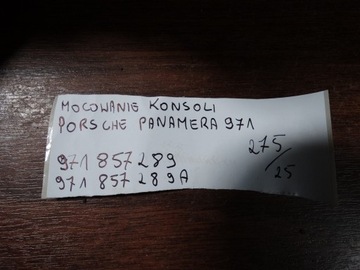 MOCOWANIE KONSOLI
PORSCHE PANAMERA 971
971 857 289
971 857 289A
275/25